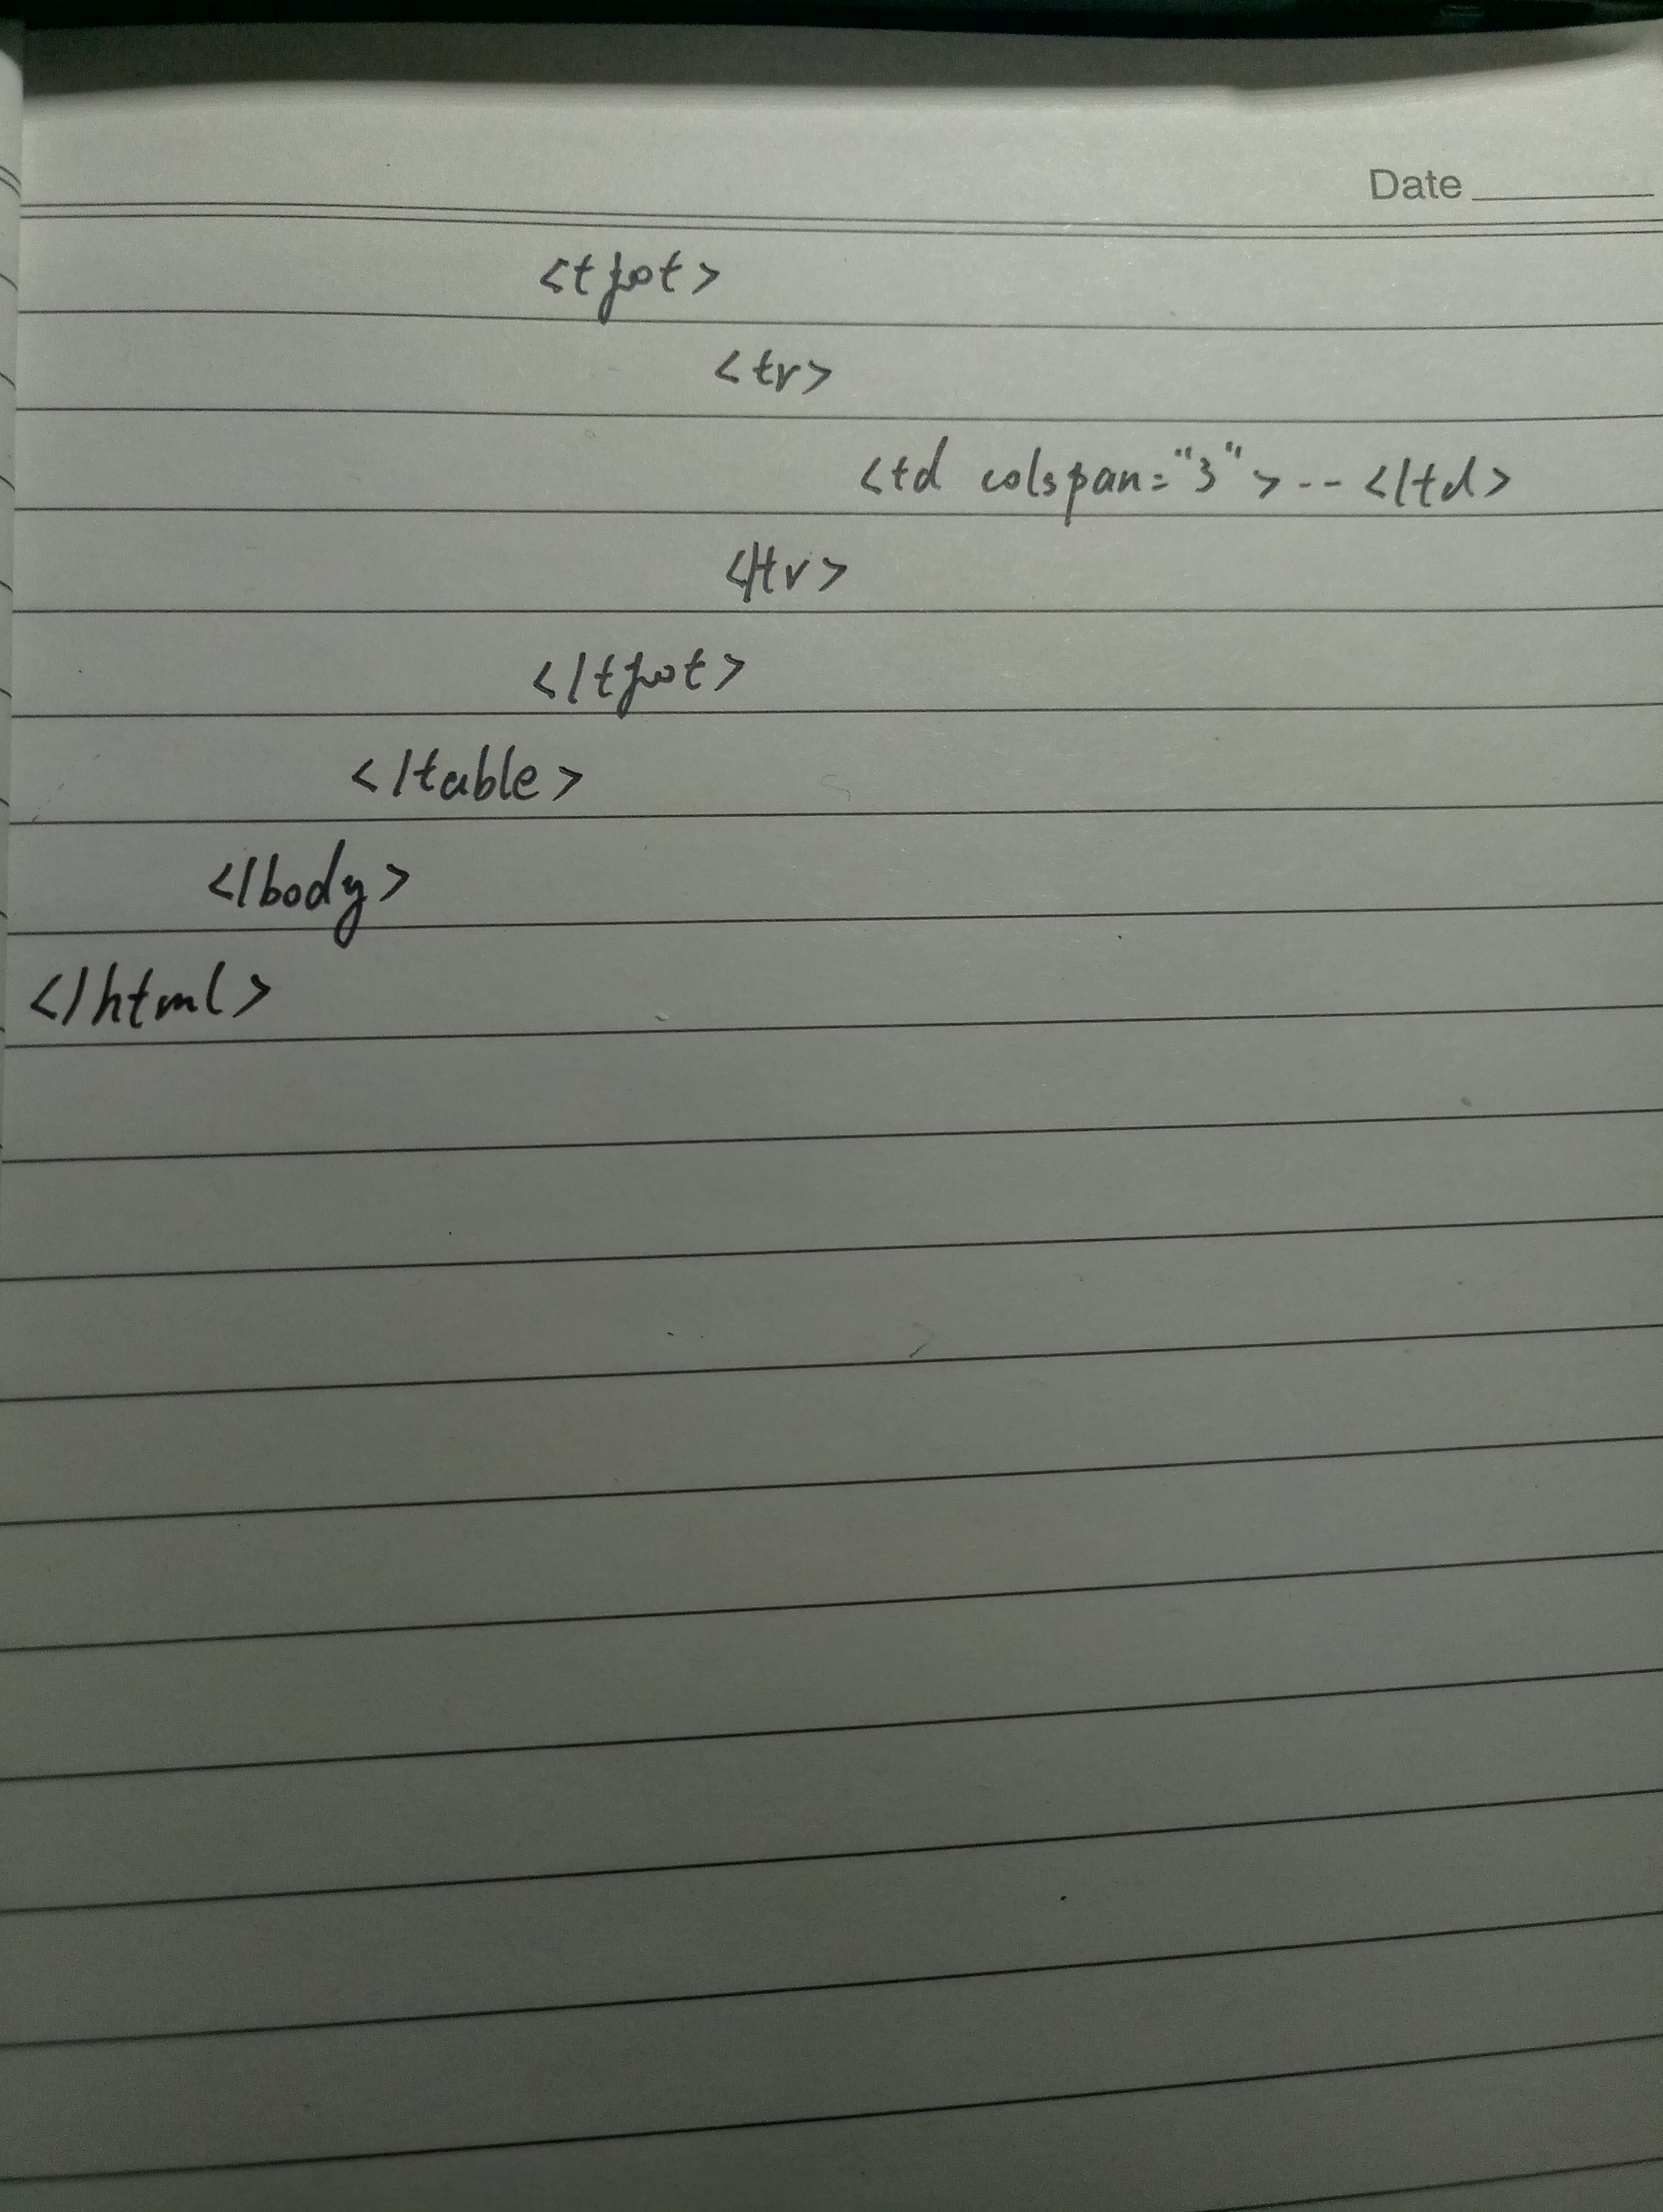 Date
<tfoot>
<tr>
<td colspan="3">--</td>
</tr>
</tfoot>
</table>
</body>
</html>